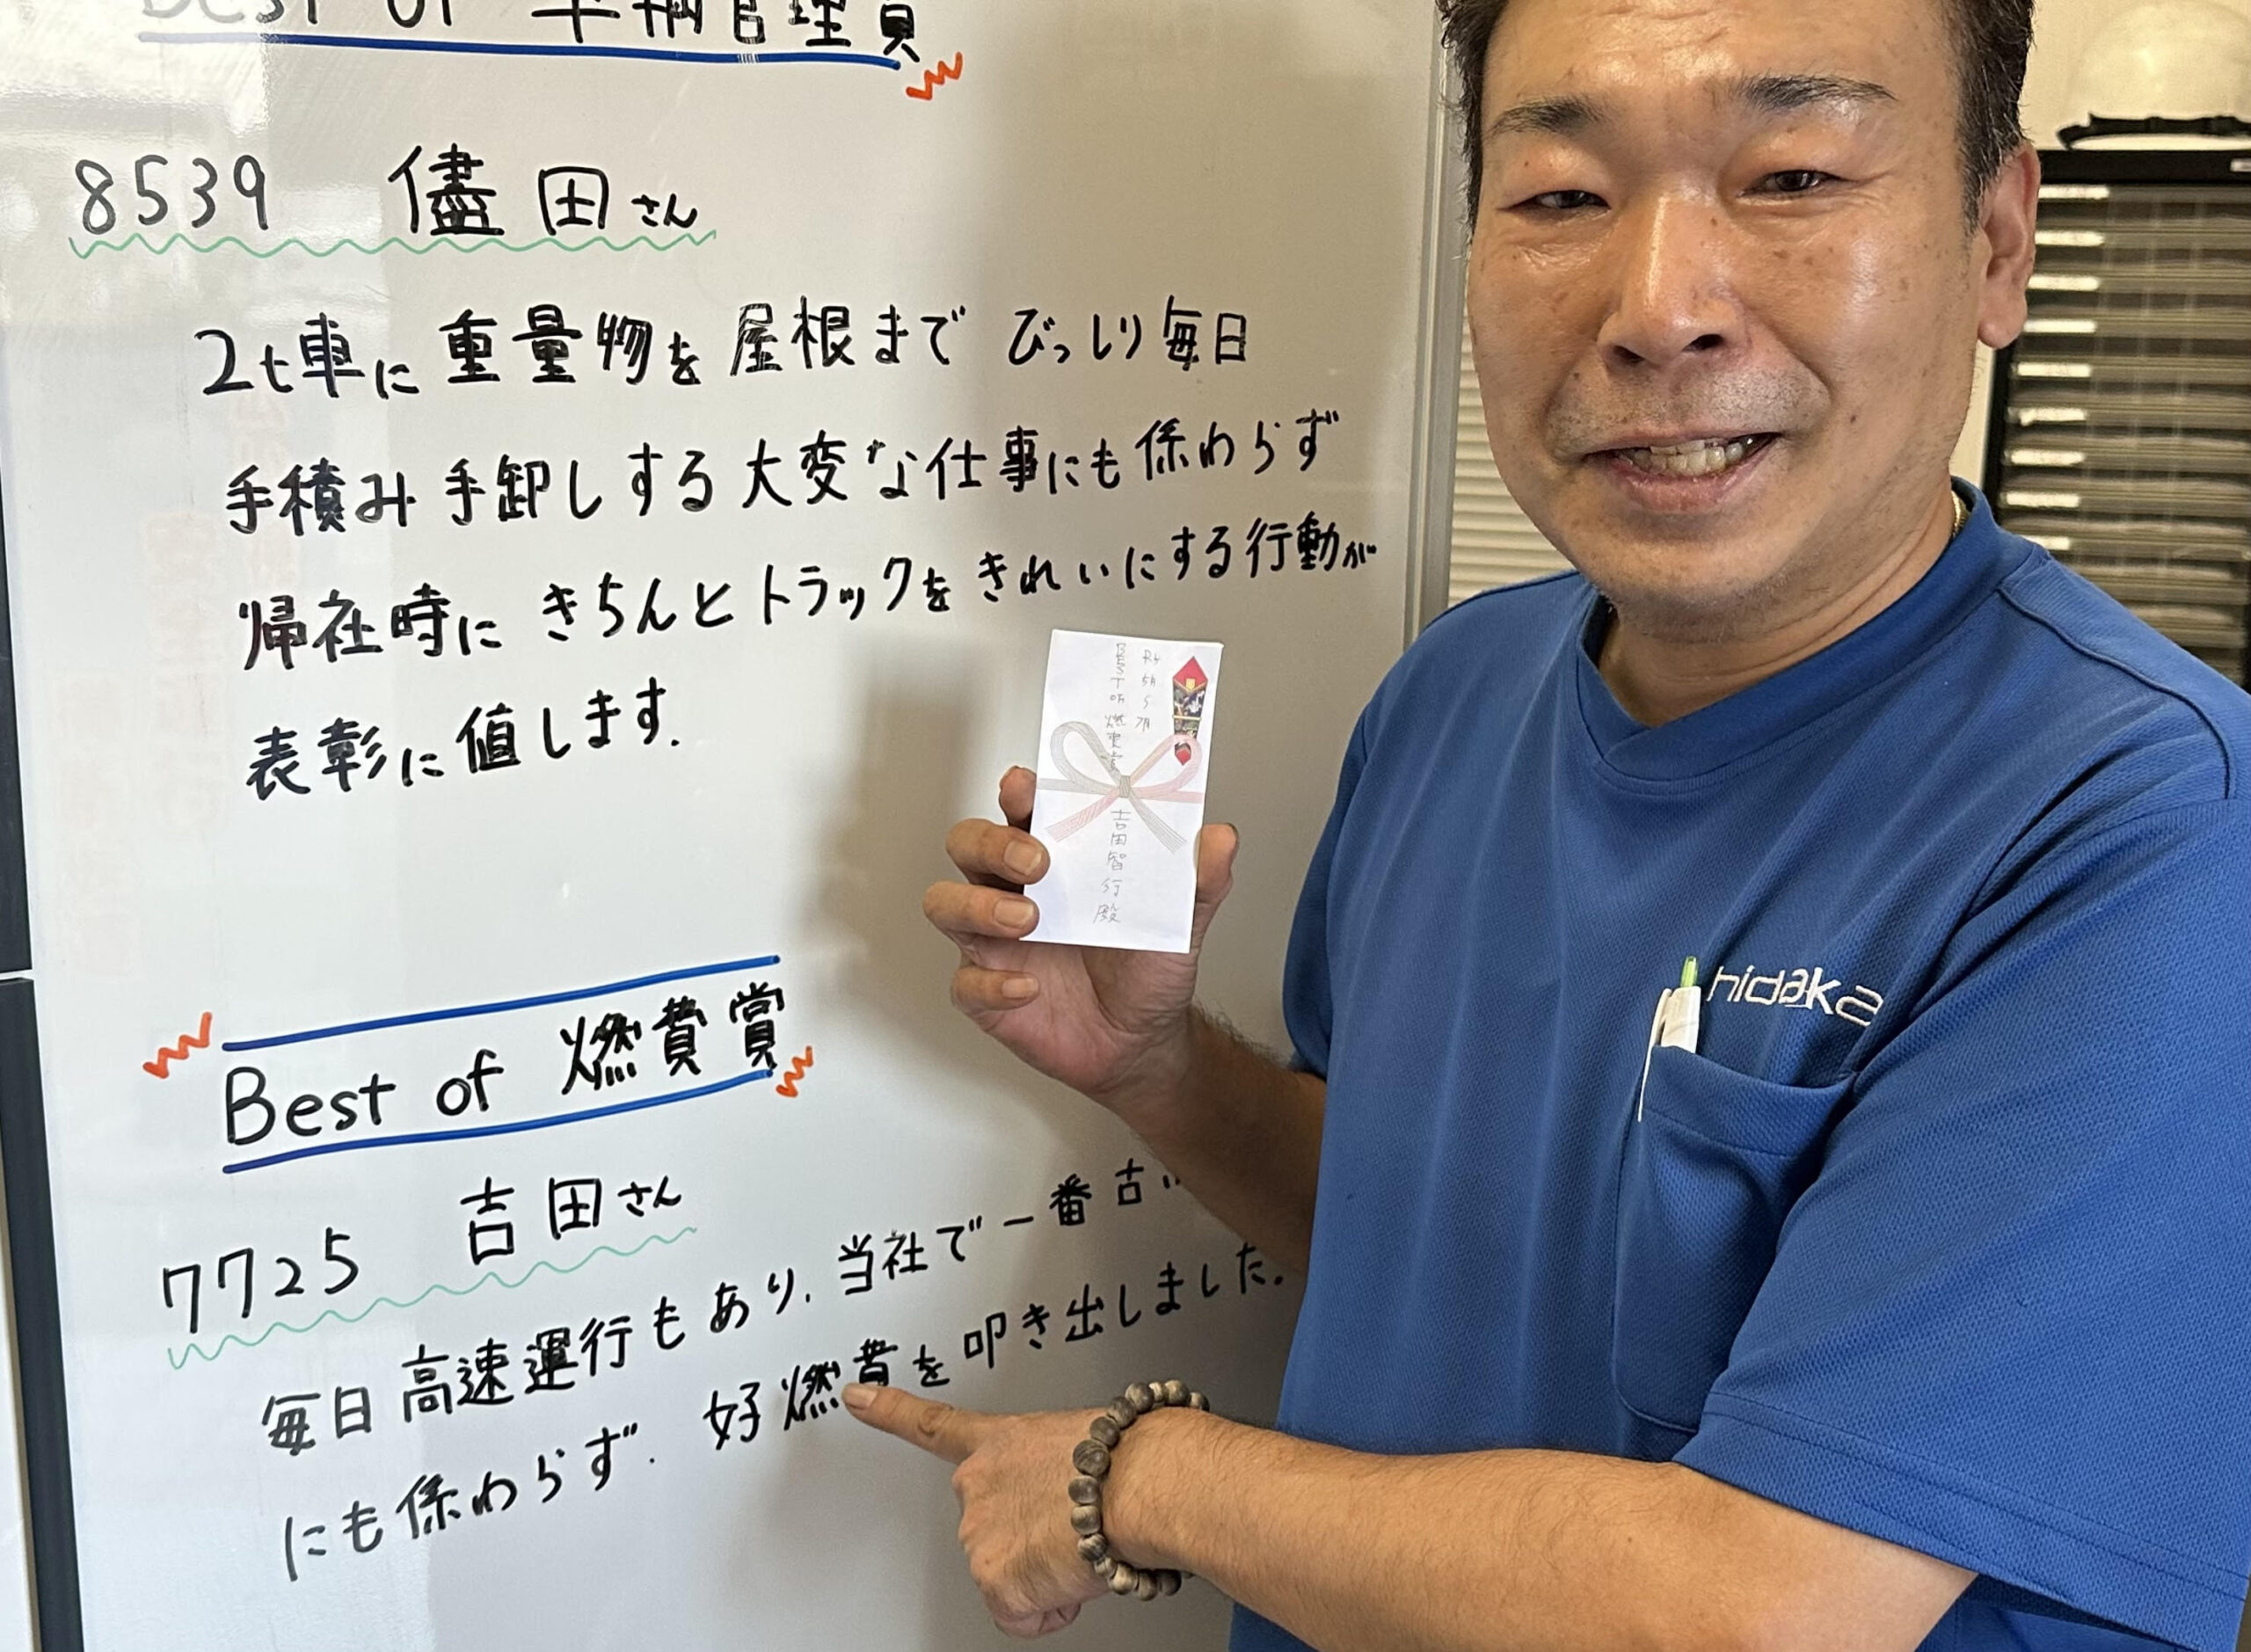 Best of 車輌管理賞
8539 儘田さん
2t車に重量物を屋根まで びっしり毎日
手積み手卸しする大変な仕事にも係わらず
帰社時に きちんとトラックをきれいにする行動が
表彰に値します.
Best of 燃費賞
7725 吉田さん
毎日高速運行もあり、当社で一番古い
にも係わらず、好燃費を叩き出しました.
BEST of 燃費賞
吉田智行殿
hidaka